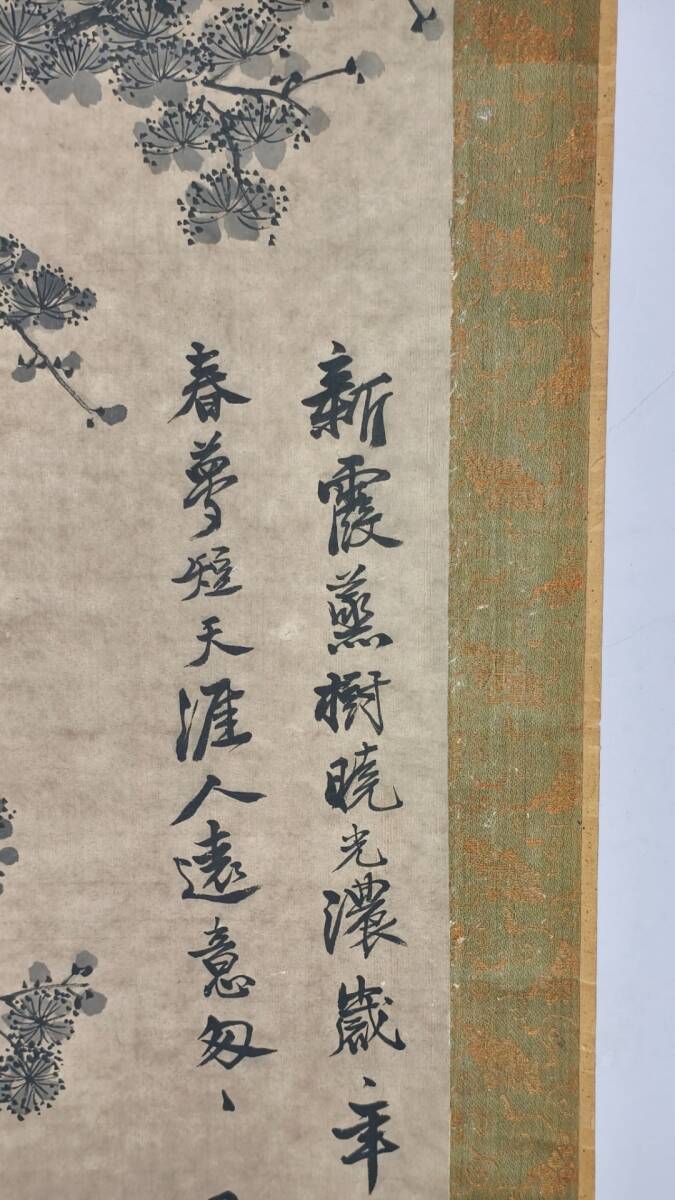 新霞蒸樹曉光濃歲〻年
春夢短天涯人遠意匆〻